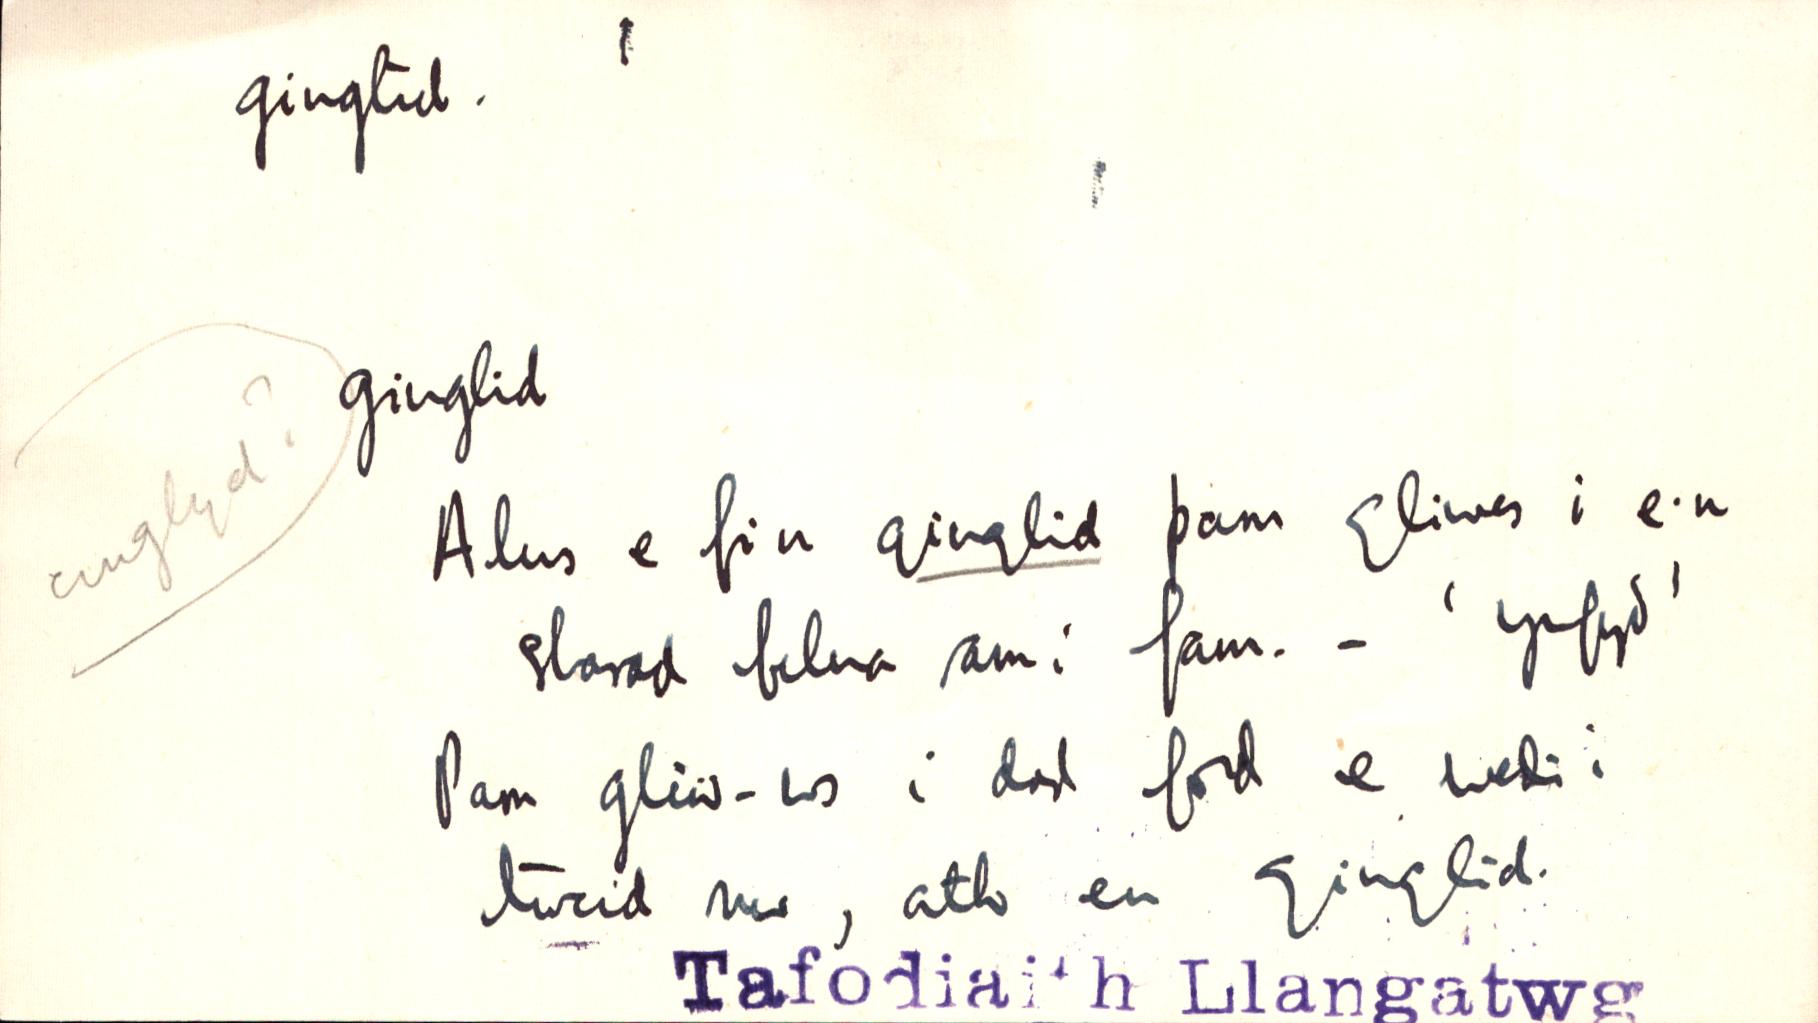 ginglid.
ginglid
cynglyd?
Alws e fi'n ginglid pam gliwes i e'n
slarad felna am i fam. - 'ynfyd'
Pam gliw-ws i dad ford e wedi i
twcid nw, ath en ginglid.
Tafodiaith Llangatwg